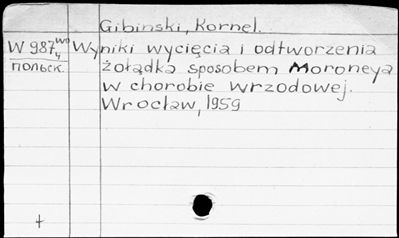 Gibiński, Kornel.
W 987 wo/4 Wyniki wycięcia i odtworzenia
польск. żołądka sposobem Moroneya
w chorobie wrzodowej.
Wrocław, 1959